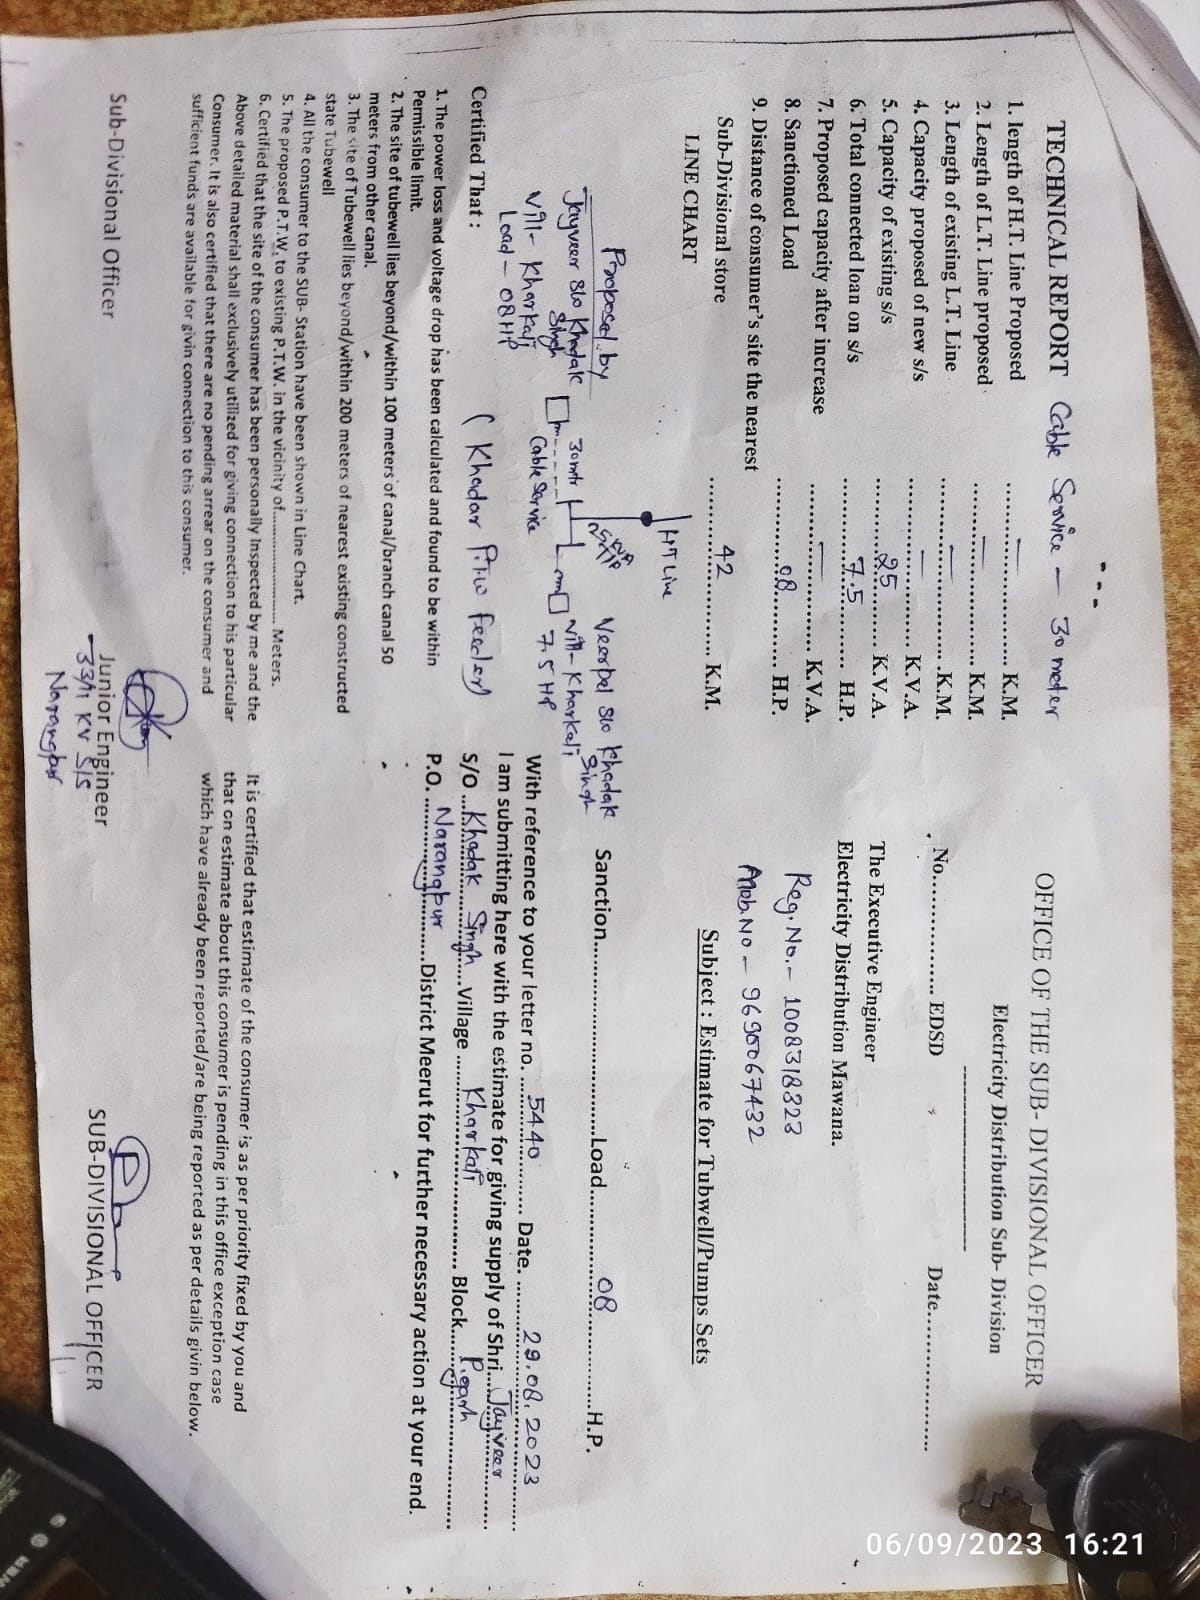 TECHNICAL REPORT Cable Service - 30 meter
1. length of H.T. Line Proposed .......—............. K.M.
2. Length of L.T. Line proposed .......—............. K.M.
3. Length of existing L.T. Line .......—............. K.M.
4. Capacity proposed of new s/s .......—............. K.V.A.
5. Capacity of existing s/s .......25............. K.V.A.
6. Total connected loan on s/s .......7.5............. H.P.
7. Proposed capacity after increase .......—............. K.V.A.
8. Sanctioned Load .......08............. H.P.
9. Distance of consumer's site the nearest
Sub-Divisional store .......42............. K.M.
LINE CHART
HT Line
Proposed by
Jayveer S/o Khadak
Singh
Vill- Kharkali
Load - 08 HP
30 mtr
Cable Service
Veerpal S/o Khadak
Singh
Vill- Kharkali
7.5 HP
( Khadar P.T.W Feeder)
Certified That :
1. The power loss and voltage drop has been calculated and found to be within
Permissible limit.
2. The site of tubewell lies beyond/within 100 meters of canal/branch canal 50
meters from other canal.
3. The site of Tubewell lies beyond/within 200 meters of nearest existing constructed
state Tubewell
4. All the consumer to the SUB- Station have been shown in Line Chart.
5. The proposed P.T.W. to existing P.T.W. in the vicinity of..................... Meters.
6. Certified that the site of the consumer has been personally Inspected by me and the
Above detailed material shall exclusively utilized for giving connection to his particular
Consumer. It is also certified that there are no pending arrear on the consumer and
sufficient funds are available for givin connection to this consumer.
Sub-Divisional Officer
Junior Engineer
33/11 KV S/S
Narangpur
OFFICE OF THE SUB- DIVISIONAL OFFICER
Electricity Distribution Sub- Division
No............... EDSD Date...................
The Executive Engineer
Electricity Distribution Mawana.
Reg. No. - 1008318323
Mob. No - 9690067432
Subject : Estimate for Tubwell/Pumps Sets
Sanction..............................Load...............08...............H.P.
With reference to your letter no. ......5440............ Date. ......29.08.2023............
I am submitting here with the estimate for giving supply of Shri......Jayveer.........
S/O ...Khadak Singh...Village ......Kharkali............ Block......P.garh............
P.O. ......Narangpur......District Meerut for further necessary action at your end.
It is certified that estimate of the consumer is as per priority fixed by you and
that on estimate about this consumer is pending in this office exception case
which have already been reported/are being reported as per details givin below.
SUB-DIVISIONAL OFFICER
06/09/2023 16:21